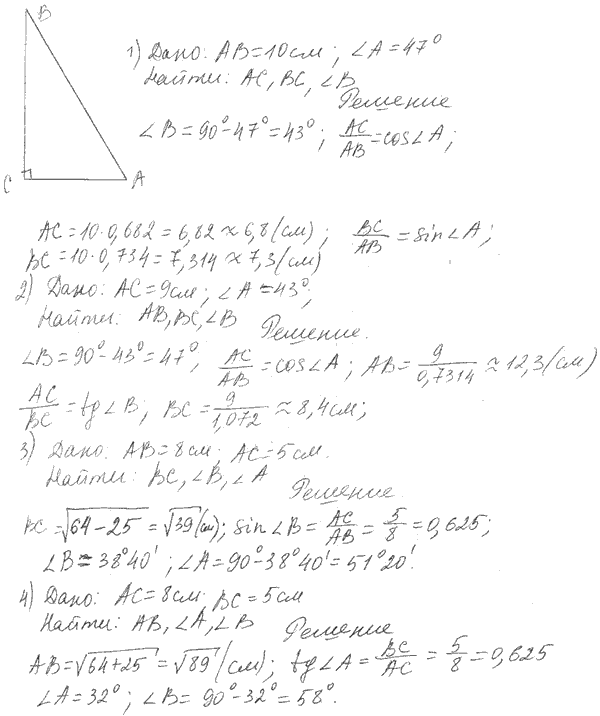 B
C
A
1) Дано: AB=10см; ∠A=47°
Найти: AC, BC, ∠B
Решение
∠B=90°-47°=43°; AC/AB=cos∠A;
AC=10·0,682=6,82≈6,8(см); BC/AB=sin∠A;
BC=10·0,734=7,314≈7,3(см)
2) Дано: AC=9см; ∠A=43°;
Найти: AB, BC, ∠B
Решение.
∠B=90°-43°=47°, AC/AB=cos∠A; AB=9/0,7314≈12,3(см)
AC/BC=tg∠B, BC=9/1,072≈8,4см;
3) Дано: AB=8см; AC=5см.
Найти: BC, ∠B, ∠A
Решение.
BC=√64-25=√39(см); sin∠B=AC/AB=5/8=0,625;
∠B=38°40'; ∠A=90°-38°40'=51°20'.
4) Дано: AC=8см BC=5см
Найти: AB, ∠A, ∠B
Решение
AB=√64+25=√89(см); tg∠A=BC/AC=5/8=0,625
∠A=32°; ∠B=90°-32°=58°.